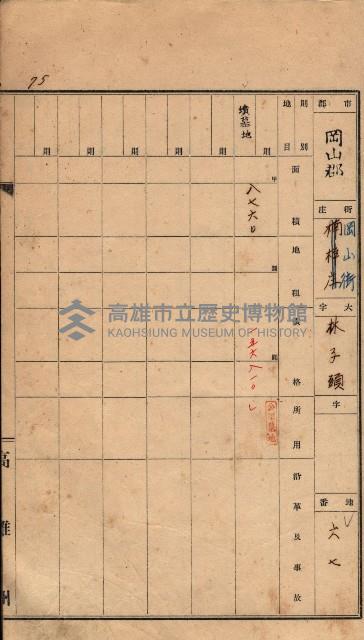 75
市郡 岡山郡
街庄 楠梓庄 岡山街
大字 林子頭
字
地番 六七
則別 地目
面積
地租
價格
所用沿革及事故
墳墓地
則 則 則 則 則 則
甲
八七六〇
圓
高雄市立歷史博物館
KAOHSIUNG MUSEUM OF HISTORY
高雄州